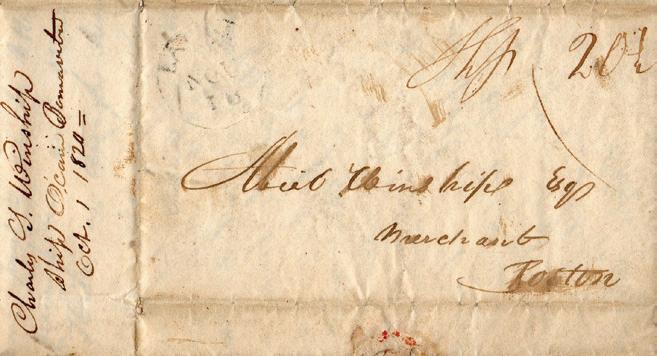 Charles L. Winship
Ship Ocean
Oct. 1 1820 =
Ship 20½
Abiel Winship Esq
Merchant
Boston